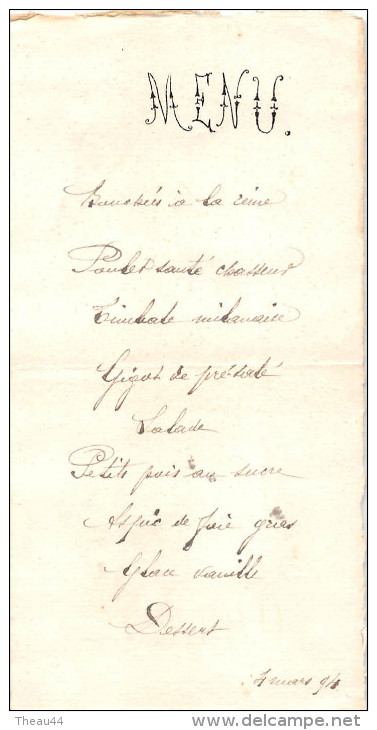 MENU.
Bouchées à la reine
Poulet sauté chasseur
Timbale milanaise
Gigot de pré-salé
Salade
Petits pois au sucre
Aspic de foie gras
Glace vanille
Dessert
mars 94
Theau44
www.delcampe.net